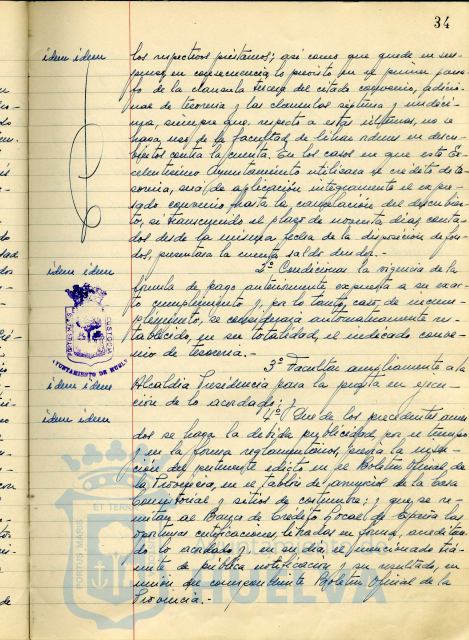 34
idem idem
los respectivos préstamos; así como que quede en sus-
penso, en consecuencia, lo previsto en el primer párra-
fo de la clausula tercera del citado convenio, adicio-
nal de tesorería y las clausulas séptima y undéci-
ma, siempre que, respecto a estas últimas, no se
haga uso de la facultad de librar ordenes en descu-
biertos contra la cuenta. En los casos en que este Ex-
celentísimo Ayuntamiento utilizara el credito de te-
sorería, será de aplicación integramente el expre-
sado convenio hasta la cancelación del descubier-
to, si transcurrido el plazo de noventa dias, conta-
dos desde la misma fecha de la disposición de fon-
dos, presentara la cuenta saldo deudor.-
idem idem
2º Condicionar la vigencia de la
formula de pago anteriormente expuesta a su exac-
to cumplimiento y, por lo tanto, caso, de incum-
plimiento, se considerará automaticamente res-
tablecido, en su totalidad, el indicado conve-
nio de tesorería.-
AYUNTAMIENTO DE HUELVA
3º Facultar ampliamente a la
idem idem
Alcaldía Presidencia para la práctica en ejecu-
ción de lo acordado; y
idem idem
4º Que de los precedentes acuer-
dos se haga la debida publicidad, por el tiempo
y en la forma reglamentarios, previa la inser-
ción del pertinente edicto en el Boletín Oficial de
la Provincia, en el tablón de anuncios de la Casa
Consistorial y sitios de costumbre; y que se re-
mitan al Banco de Crédito Local de España las
oportunas certificaciones, libradas en forma, acreditan-
do lo acordado y en su dia el mencionado trá-
mite de pública notificación y su resultado, en
unión del correspondiente Boletín Oficial de la
Provincia.-
PORTUS MARIS
ET TERRAE
HUELVA